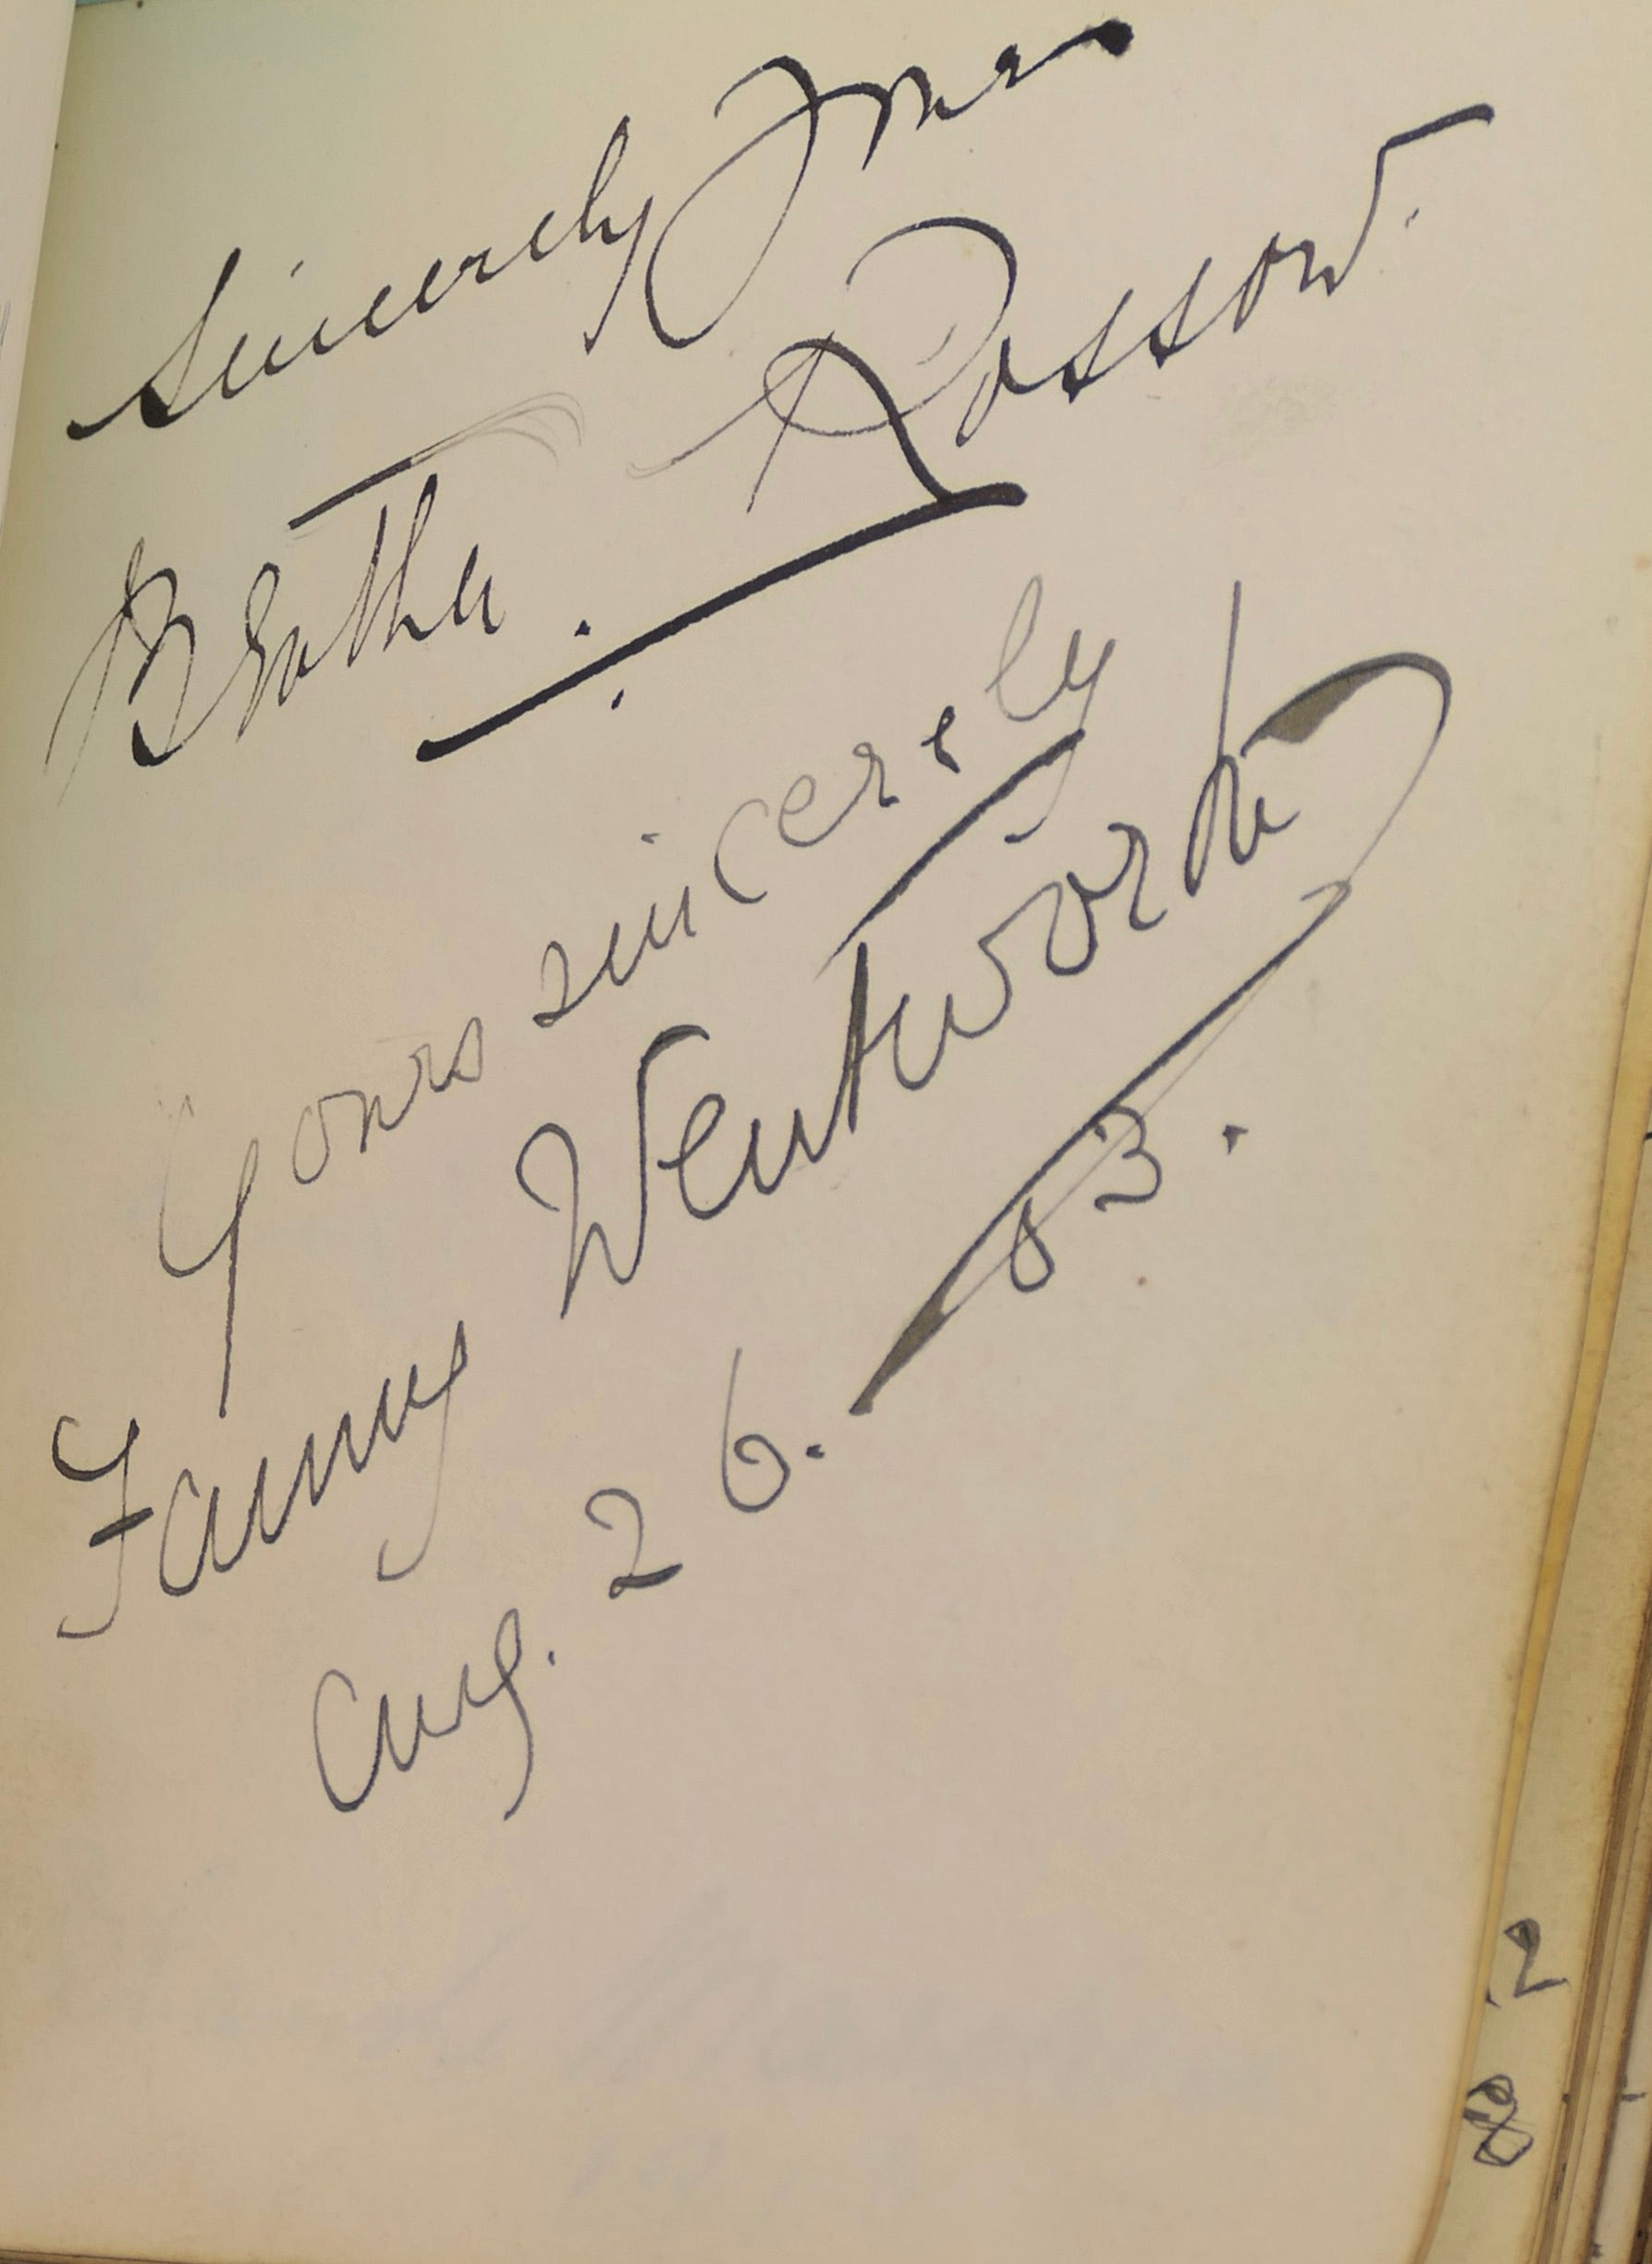 Sincerely Yours
Bertha Rossow.
Yours sincerely
Fanny Wentworth
Aug. 26. 03.
2
8